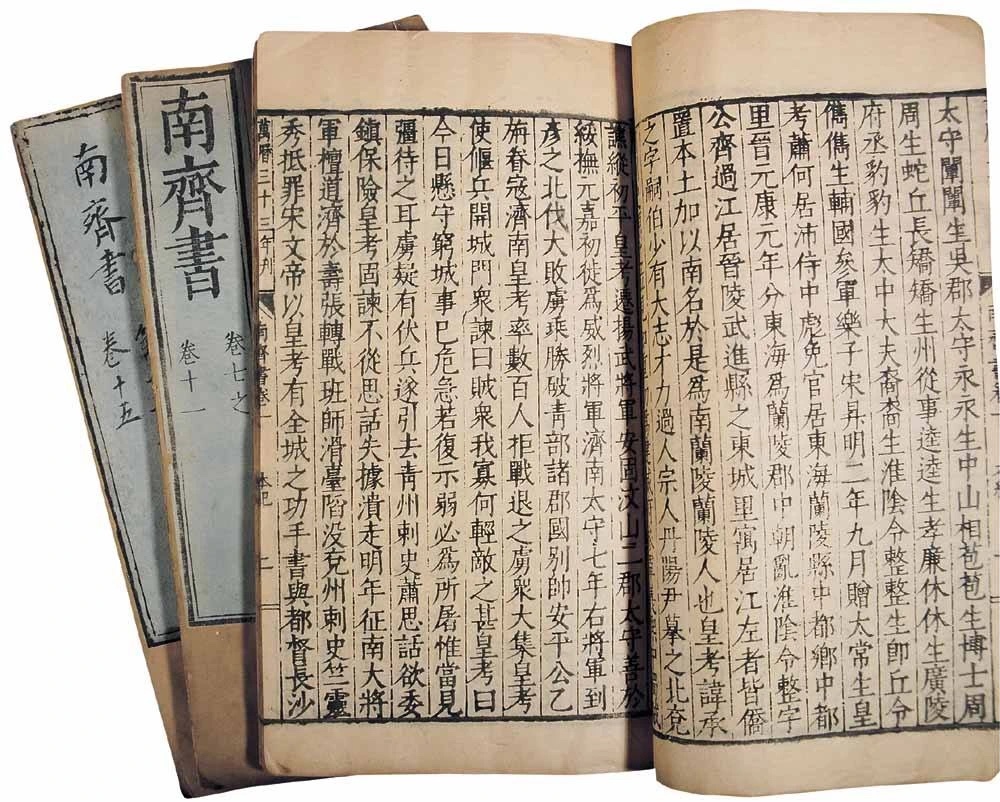 太守闡闡生吳郡太守永永生中山相苞苞生博士周
周生蛇丘長矯矯生州從事逵逵生孝廉休休生廣陵
府丞豹豹生太中大夫裔裔生淮陰令整整生即丘令
儁儁生輔國參軍樂子宋昇明二年九月贈太常生皇
考蕭何居沛侍中彪免官居東海蘭陵縣中都鄉中都
里晉元康元年分東海爲蘭陵郡中朝亂淮陰令整字
公齊過江居晉陵武進縣之東城里寓居江左者皆僑
置本土加以南名於是爲南蘭陵蘭陵人也皇考諱承
之字嗣伯少有大志才力過人宗人丹陽尹摹之北兗
譙縱初平皇考遷揚武將軍安固汶山二郡太守善於
綏撫元嘉初徙爲威烈將軍濟南太守七年右將軍到
彥之北伐大敗虜乘勝破青部諸郡國别帥安平公乙
旃眷寇濟南皇考率數百人拒戰退之虜衆大集皇考
使偃兵開城門衆諫曰賊衆我寡何輕敵之甚皇考曰
今日懸守窮城事已危急若復示弱必爲所屠惟當見
彊待之耳虜疑有伏兵遂引去青州刺史蕭思話欲委
鎮保險皇考固諫不從思話失據潰走明年征南大將
軍檀道濟於壽張轉戰班師滑臺陷没兗州刺史竺靈
秀抵罪宋文帝以皇考有全城之功手書與都督長沙
萬曆三十三年刊 南齊書卷一 本紀
南齊書
卷七之
卷十一
南齊書
卷十五